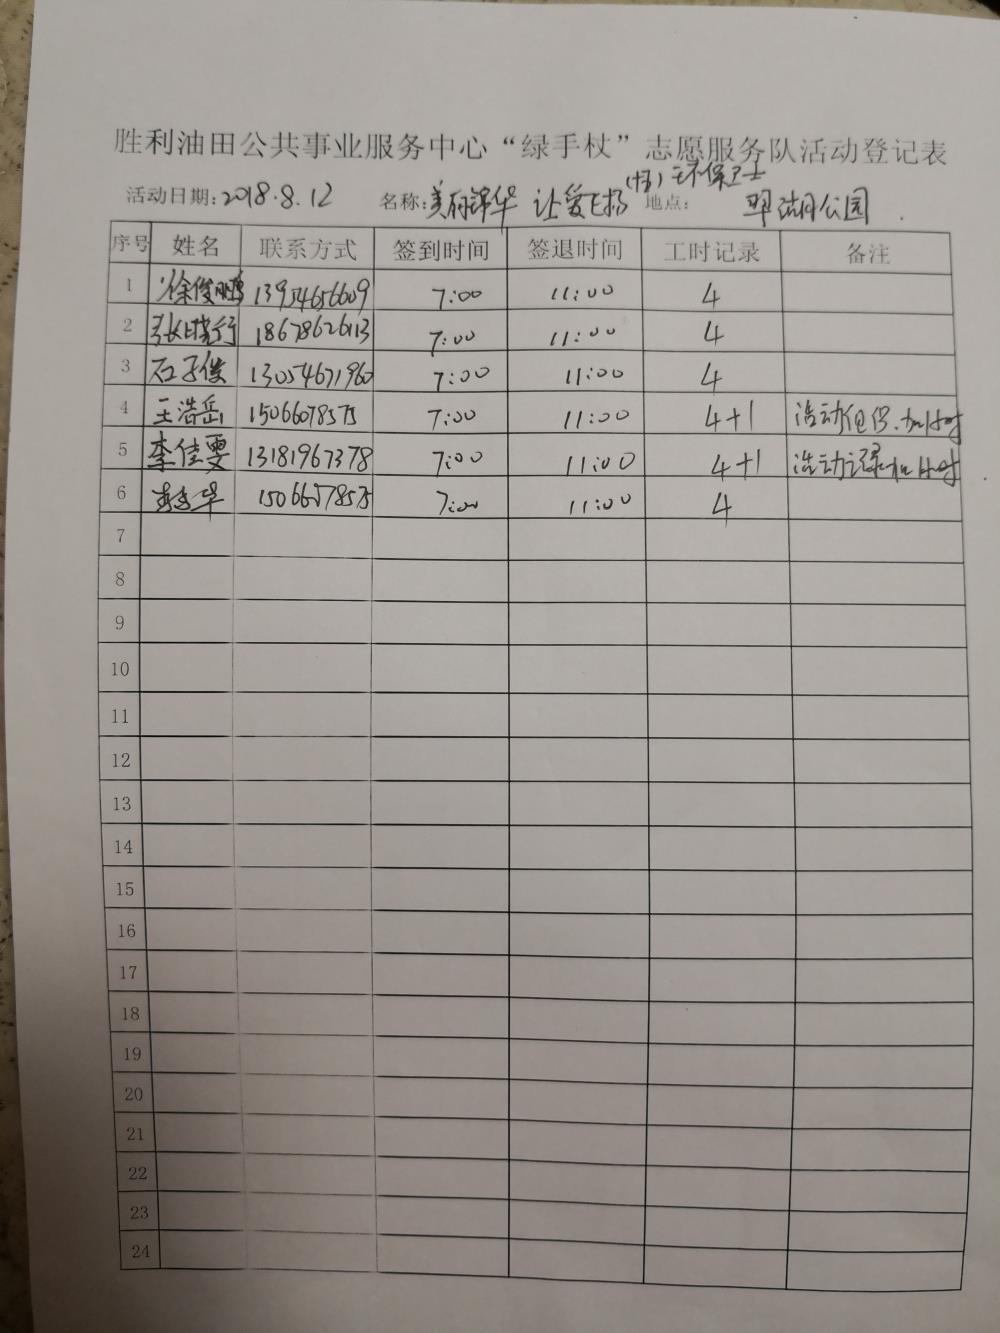 胜利油田公共事业服务中心“绿手杖”志愿服务队活动登记表
活动日期:2018.8.12 名称:美丽锦华 让爱飞扬 环保卫士 地点: 公园
序号 姓名 联系方式 签到时间 签退时间 工时记录 备注
1 徐俊鹏 13954656609 7:00 11:00 4
2 张晓行 18678626113 7:00 11:00 4
3 石子俊 13054671960 7:00 11:00 4
4 王浩岳 15066078575 7:00 11:00 4+1 活动
5 李佳雯 13181967378 7:00 11:00 4+1 活动记录
6 15066578575 7:00 11:00 4
7
8
9
10
11
12
13
14
15
16
17
18
19
20
21
22
23
24